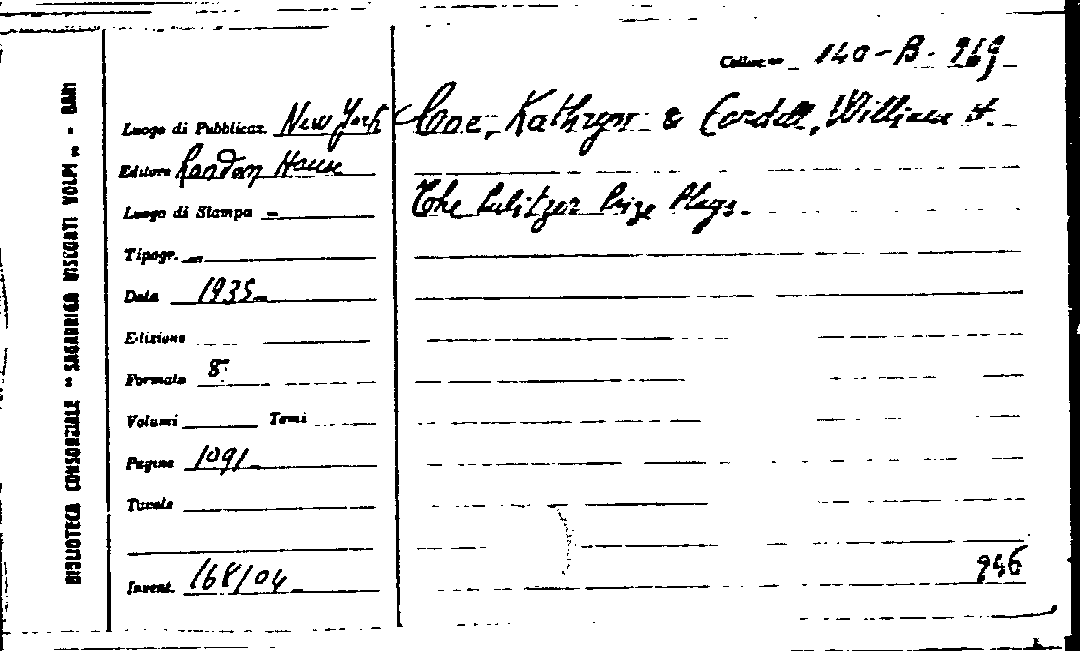 BIBLIOTECA CONSORZIALE "SAGARRIGA VISCONTI VOLPI" - BARI
Colloc.ne 140-B-269
Luogo di Pubblicaz. New York
Coe, Kathryn & Cordell, William H.
Editore Random House
The Pulitzer Prize Plays.
Luogo di Stampa -
Tipogr. -
Data 1935
Edizione
Formato 8°
Volumi Tomi
Pagine 1091
Tavole
Invent. 168104
946